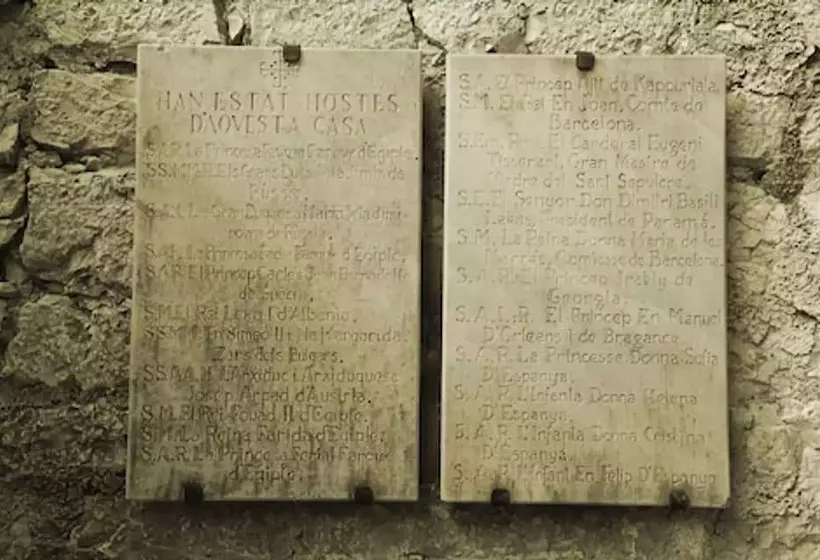 HAN ESTAT HOSTES
D'AQVESTA CASA
S.A.R. La Princesa Farouk d'Egipte.
de
Rússia.
S.A.I. La Gran Duquesa Maria
de Rússia.
S.A.R. La Princesa Farouk d'Egipte.
S.A.R. El Princep Carles Bernadotte
de Suecia.
S.M. El Rei Leka I d'Albania.
SS.MM. En Simeó II i Na Margarida,
Zars dels Bulgars.
SS.AA.II. L'Arxiduc i Arxiduquesa
Josep Arpad d'Austria.
S.M. El Rei Fouad II d'Egipte.
S.M. La Reina Farida d'Egipte.
S.A.R. La Princesa Ferial Farouk
d'Egipte.
S.A. El Princep Ajit de Kapourtala.
S.M. El Rei En Joan, Comte de
Barcelona.
S. Em. Rma. El Cardenal Eugeni
Tisserant, Gran Mestre de
del Sant Sepulcre.
S.E. El Senyor Don Dimitri Basili
Lakas, President de Panamá.
S.M. La Reina Donna Maria de les
Mercés, Comtessa de Barcelona.
S.A.R. El Princep Irakly de
Georgia.
S.A.I.R. El Princep En Manuel
D'Orleans i de Bragance.
S.A.R. La Princesse Donna Sofia
D'Espanya.
S.A.R. L'Infanta Donna Helena
D'Espanya.
S.A.R. L'Infanta Donna Cristina
D'Espanya.
S.A.R. L'Infant En Felip D'Espanya